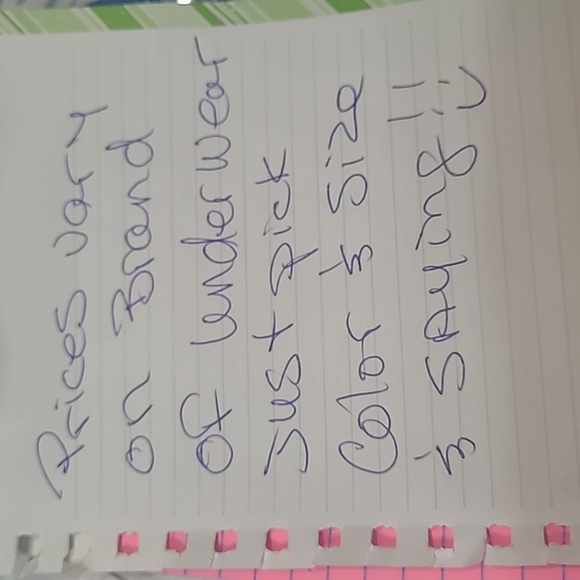 Prices vary
on Brand
of underwear
Just pick
Color & Size
& Saying!!
:)